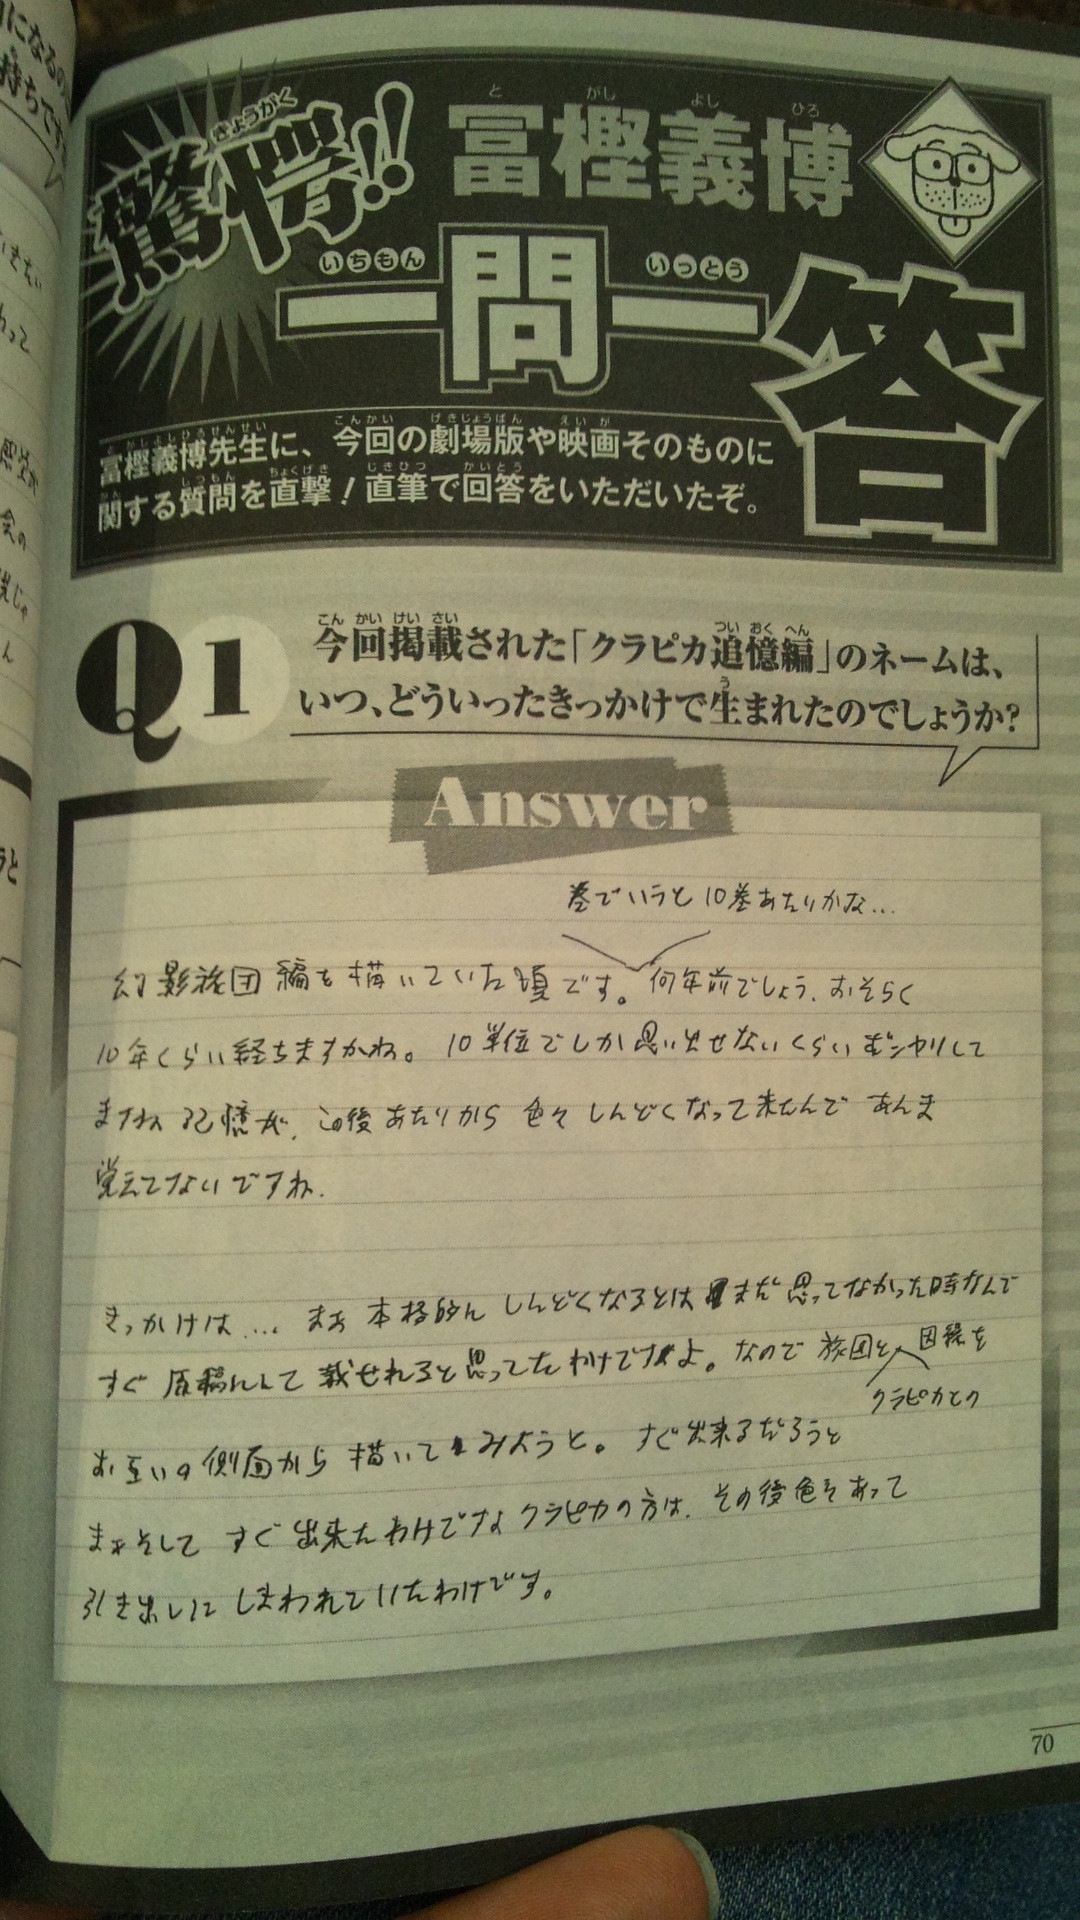 驚愕!!
きょうがく
冨樫義博
と がし よし ひろ
一問一答
いちもん いっとう
冨樫義博先生に、今回の劇場版や映画そのものに
関する質問を直撃!直筆で回答をいただいたぞ。
Q1
今回掲載された「クラピカ追憶編」のネームは、
いつ、どういったきっかけで生まれたのでしょうか?
Answer
巻でいうと10巻あたりかな…
幻影旅団編を描いていた頃です。何年前でしょう、おそらく
10年くらい経ちますかね。10単位でしか思い出せないくらいボンヤリして
ますね記憶が、この後あたりから色々しんどくなって来たんであんま
覚えてないですね.
きっかけは… まあ本格的にしんどくなるとはまだ思ってなかった時なんで
すぐ原稿にして載せれると思ってたわけですよ。なので旅団と因縁を
クラピカとの
お互いの側面から描いてみようと。すぐ出来るだろうと
まぁそしてすぐ出来たわけでな クラピカの方は、その後色々あって
引き出しにしまわれていたわけです。
70